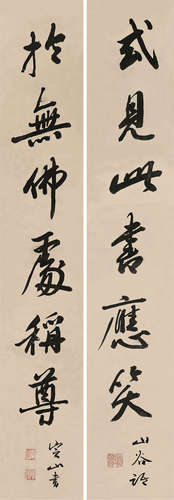 或見此書應笑
山谷語
於無佛處稱尊
山書